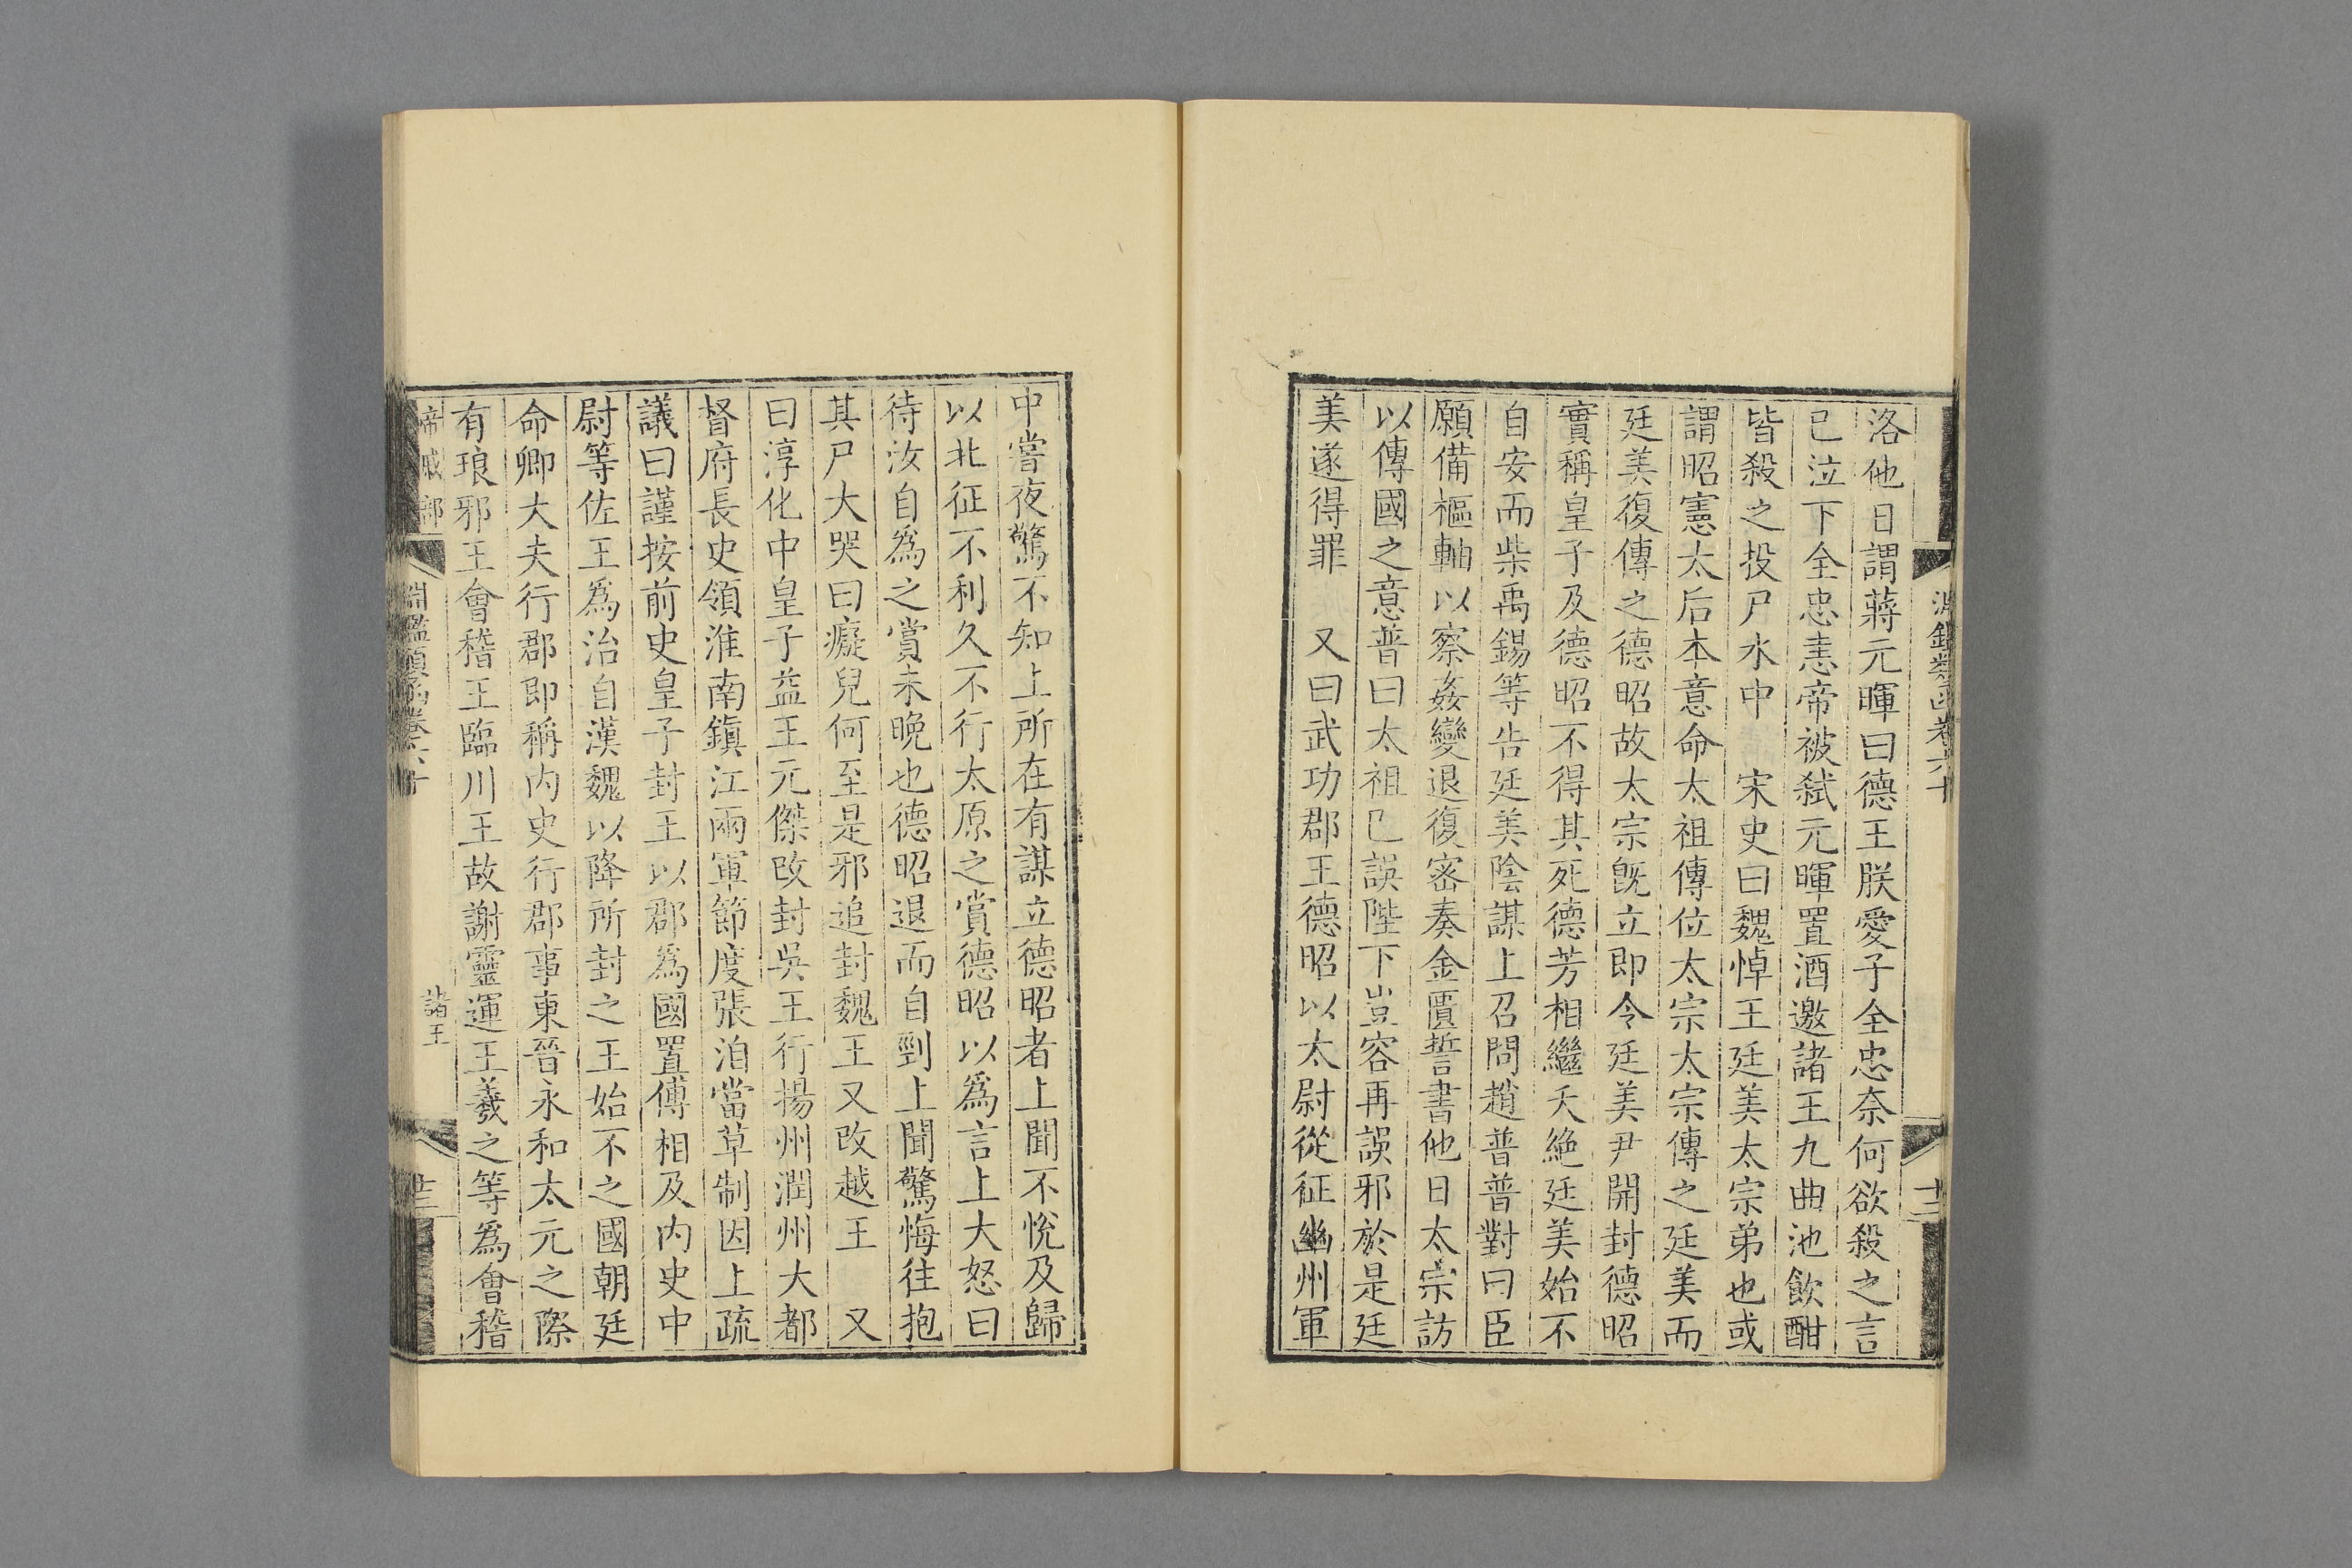 洛他日謂蔣元暉曰德王朕愛子全忠奈何欲殺之言
已泣下全忠恚帝被弑元暉置酒邀諸王九曲池飲酣
皆殺之投尸水中 宋史曰魏悼王廷美太宗弟也或
謂昭憲太后本意命太祖傳位太宗太宗傳之廷美而
廷美復傳之德昭故太宗旣立即令廷美尹開封德昭
實稱皇子及德昭不得其死德芳相繼夭絶廷美始不
自安而柴禹錫等告廷美陰謀上召問趙普普對曰臣
願備樞軸以察姦變退復密奏金匱誓書他日太宗訪
以傳國之意普曰太祖已誤陛下豈容再誤邪於是廷
美遂得罪 又曰武功郡王德昭以太尉從征幽州軍
中嘗夜驚不知上所在有謀立德昭者上聞不悅及歸
以北征不利久不行太原之賞德昭以爲言上大怒曰
待汝自爲之賞未晚也德昭退而自剄上聞驚悔往抱
其尸大哭曰癡兒何至是邪追封魏王又改越王 又
曰淳化中皇子益王元傑改封吳王行揚州潤州大都
督府長史領淮南鎭江兩軍節度張洎當草制因上疏
議曰謹按前史皇子封王以郡爲國置傅相及内史中
尉等佐王爲治自漢魏以降所封之王始不之國朝廷
命卿大夫行郡即稱内史行郡事東晉永和太元之際
有琅邪王會稽王臨川王故謝靈運王羲之等爲會稽
帝戚部
淵鑑類函卷六十
諸王